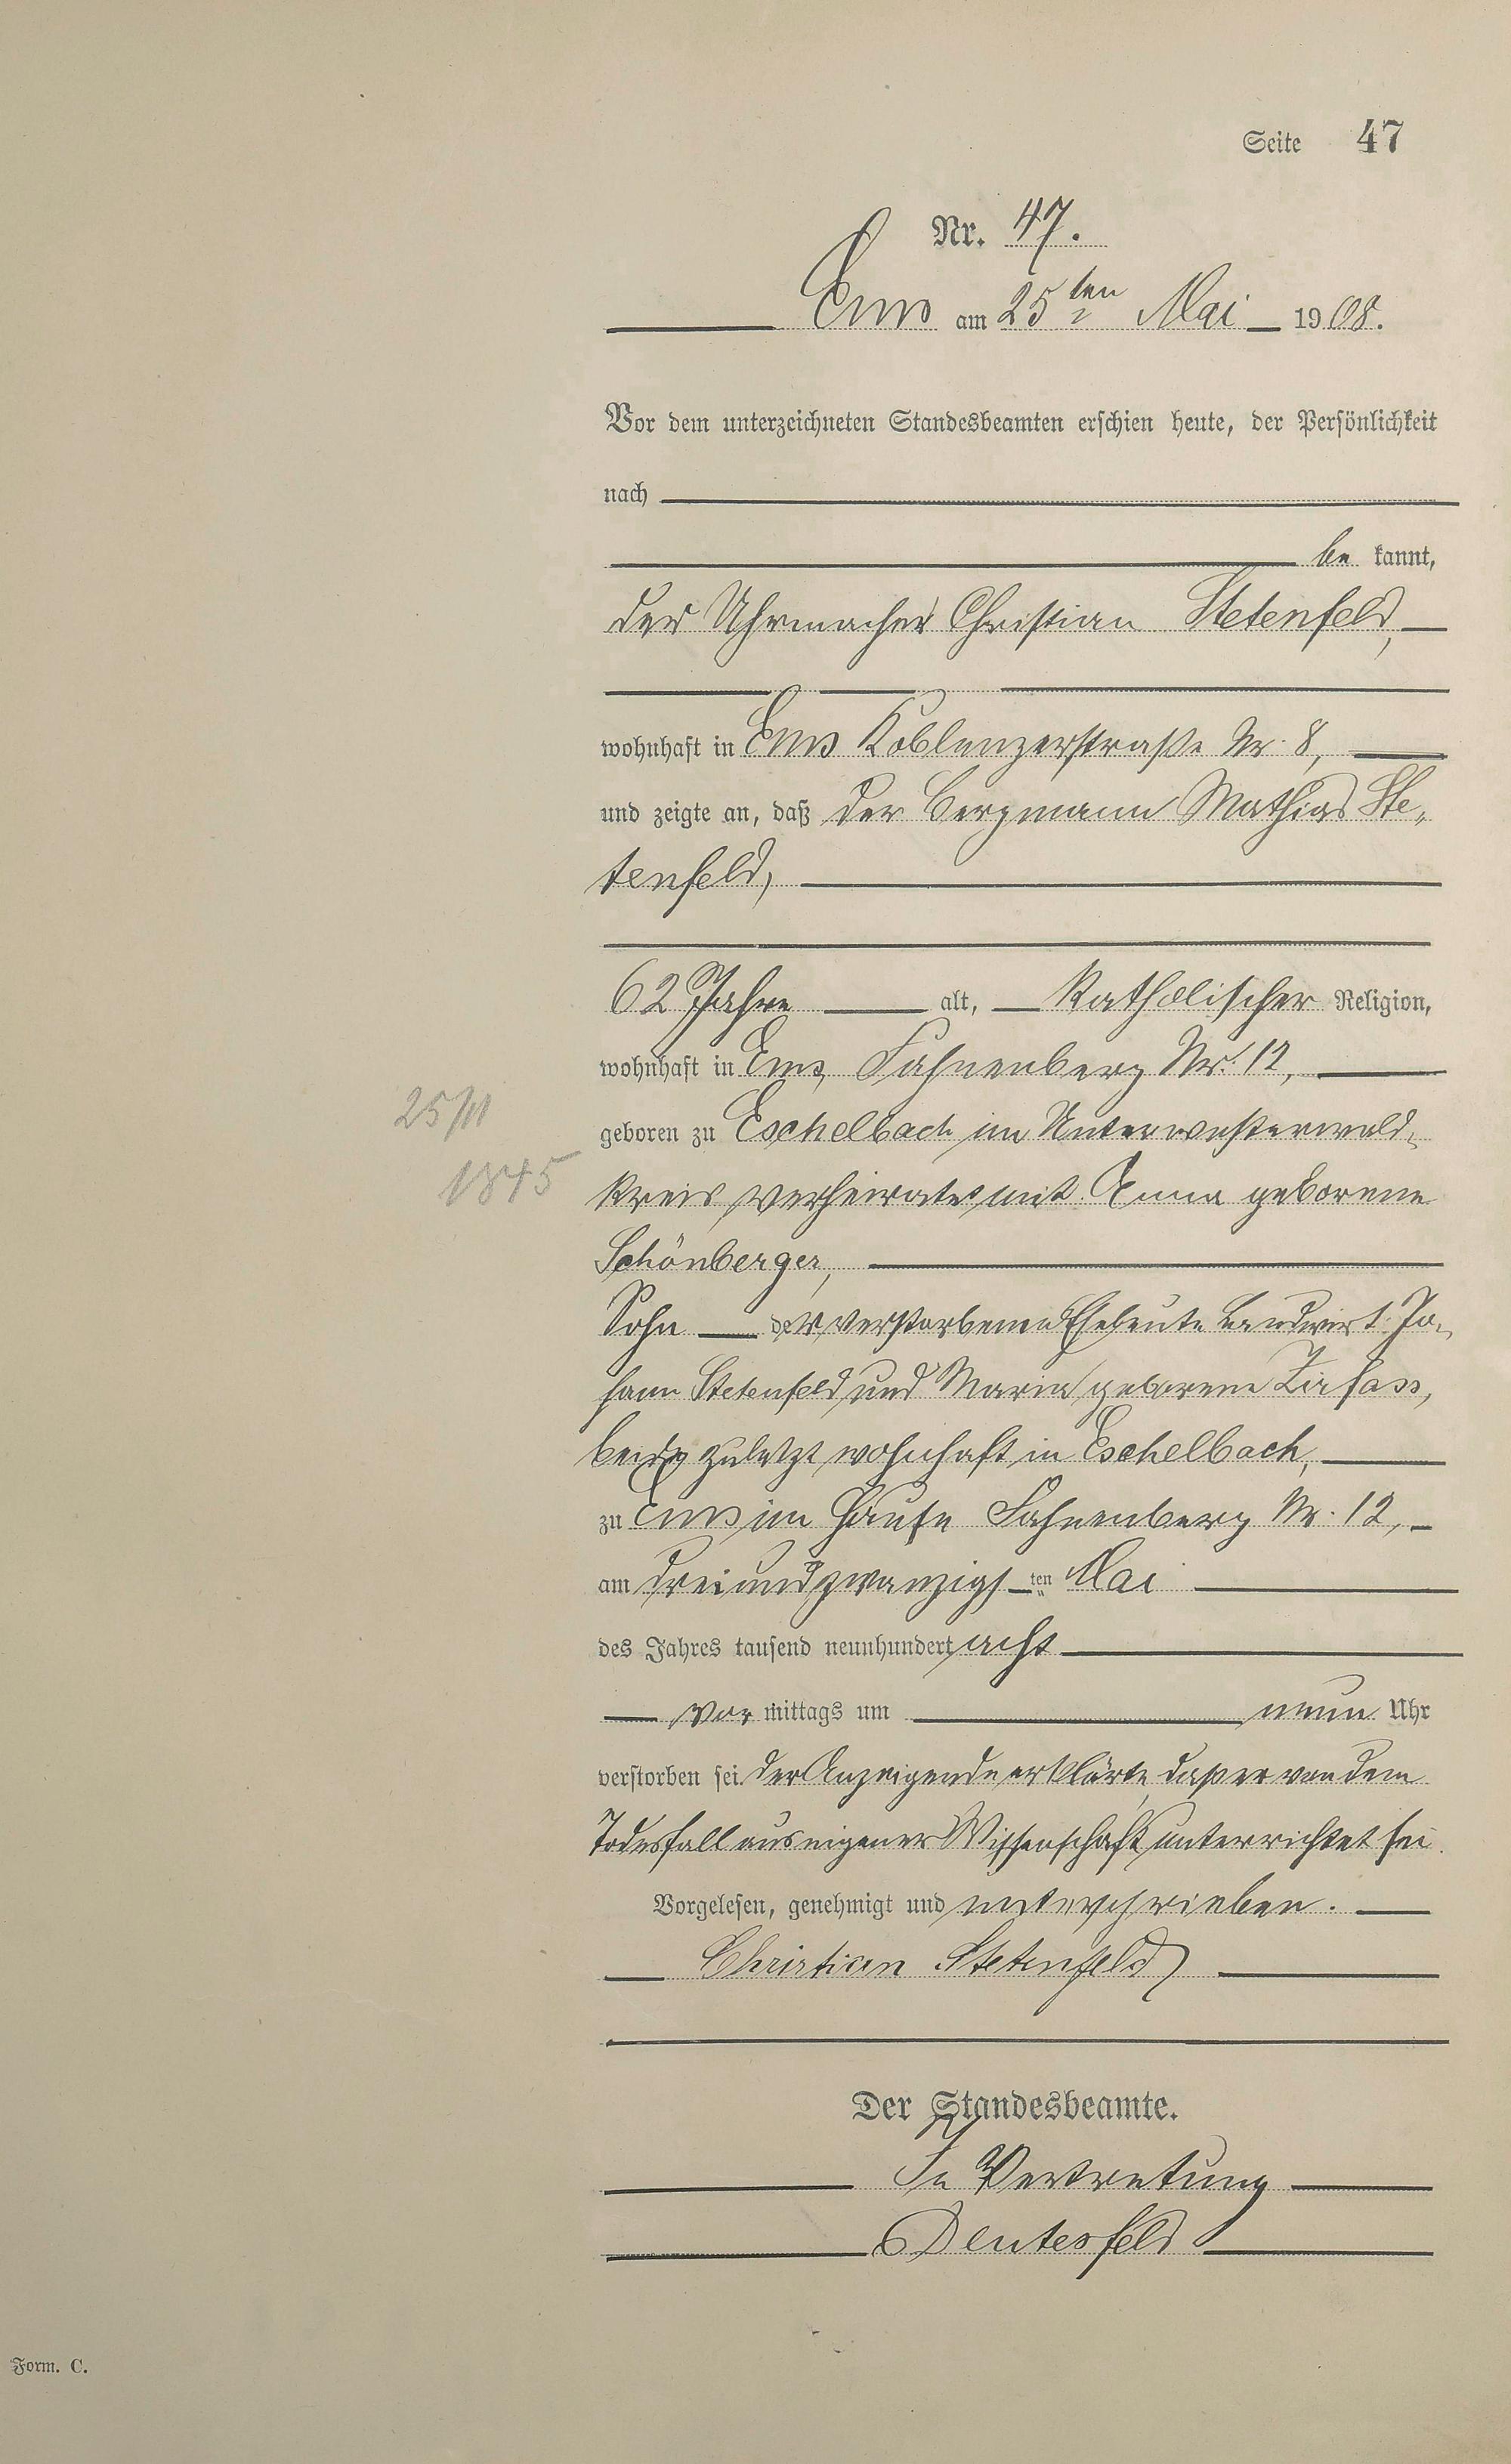 Seite 47
Nr. 47.
Ems am 25ten Mai 1908.
Vor dem unterzeichneten Standesbeamten erschien heute, der Persönlichkeit
nach
be kannt,
der Uhrmacher Christian Stetenfeld,
wohnhaft in Ems Koblenzerstraße Nr. 8,
und zeigte an, daß der Bergmann Mathias Ste-
tenfeld,
62 Jahre alt, katholischer Religion,
wohnhaft in Ems, Fahnenberg Nr. 12,
25/11
geboren zu Eschelbach im Unterwesterwald-
1845
kreis, verheiratet mit Anna geborene
Schönberger,
Sohn der verstorbenen Eheleute Landwirt Jo-
hann Stetenfeld und Maria geborene
beide zuletzt wohnhaft in Eschelbach,
zu Ems im Hause Fahnenberg Nr. 12,
am dreiundzwanzigsten Mai
des Jahres tausend neunhundert acht
vor mittags um neun Uhr
verstorben sei. Der Anzeigende erklärte, daß er von dem
Todesfall aus eigener Wissenschaft unterrichtet sei.
Vorgelesen, genehmigt und unterschrieben.
Christian Stetenfeld
Der Standesbeamte.
In Vertretung
Deutesfeld
Form. C.